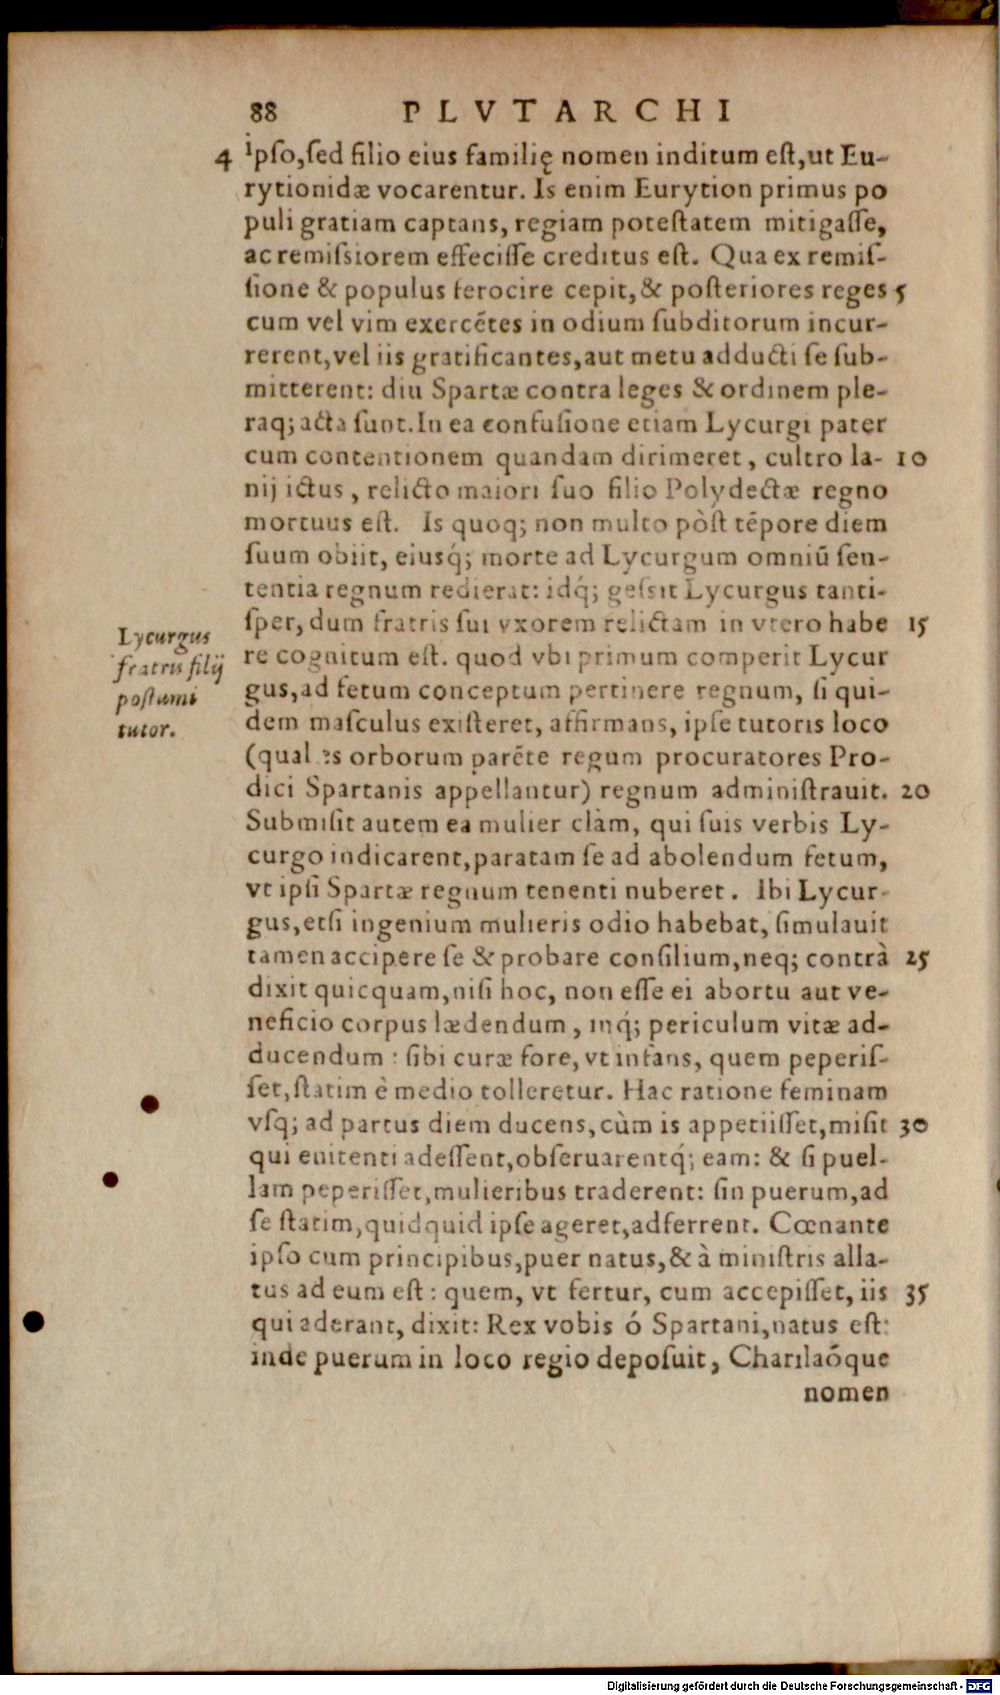 88 PLVTARCHI
4 ipso, sed filio eius familię nomen inditum est, ut Eu-
rytionidæ vocarentur. Is enim Eurytion primus po
puli gratiam captans, regiam potestatem mitigasse,
ac remissiorem effecisse creditus est. Qua ex remis-
sione & populus ferocire cepit, & posteriores reges 5
cum vel vim exercētes in odium subditorum incur-
rerent, vel iis gratificantes, aut metu adducti se sub-
mitterent: diu Spartæ contra leges & ordinem ple-
raq; acta sunt. In ea confusione etiam Lycurgi pater
cum contentionem quandam dirimeret, cultro la- 10
nij ictus, relicto maiori suo filio Polydectæ regno
mortuus est. Is quoq; non multo pòst tēpore diem
suum obiit, eiusq́; morte ad Lycurgum omniū sen-
tentia regnum redierat: idq́; gessit Lycurgus tanti-
sper, dum fratris sui vxorem relictam in vtero habe 15
re cognitum est. quod vbi primum comperit Lycur
gus, ad fetum conceptum pertinere regnum, si qui-
dem masculus existeret, affirmans, ipse tutoris loco
(quales orborum parēte regum procuratores Pro-
dici Spartanis appellantur) regnum administrauit. 20
Submisit autem ea mulier clàm, qui suis verbis Ly-
curgo indicarent, paratam se ad abolendum fetum,
vt ipsi Spartæ regnum tenenti nuberet. Ibi Lycur-
gus, etsi ingenium mulieris odio habebat, simulauit
tamen accipere se & probare consilium, neq; contrà 25
dixit quicquam, nisi hoc, non esse ei abortu aut ve-
neficio corpus lædendum, inq́; periculum vitæ ad-
ducendum: sibi curæ fore, vt infans, quem peperis-
set, statim è medio tolleretur. Hac ratione feminam
vsq; ad partus diem ducens, cùm is appetiisset, misit 30
qui enitenti adessent, obseruarentq́; eam: & si puel-
lam peperisset, mulieribus traderent: sin puerum, ad
se statim, quidquid ipse ageret, adferrent. Cœnante
ipso cum principibus, puer natus, & à ministris alla-
tus ad eum est: quem, vt fertur, cum accepisset, iis 35
qui aderant, dixit: Rex vobis ó Spartani, natus est:
inde puerum in loco regio deposuit, Charilaóque
nomen
Lycurgus
fratris filij
postumi
tutor.
Digitalisierung gefördert durch die Deutsche Forschungsgemeinschaft - DFG